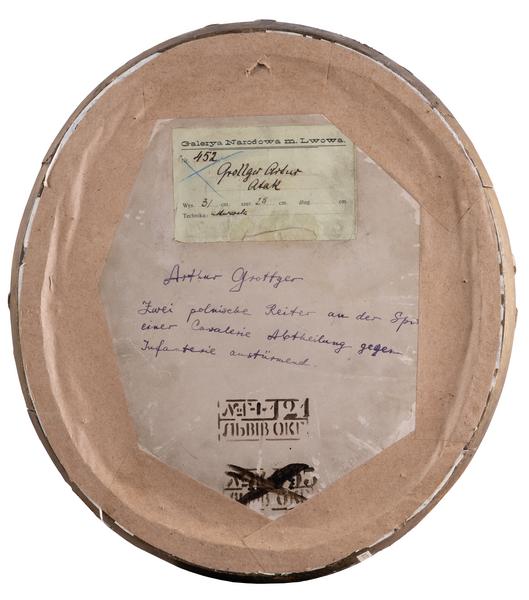 Galerya Narodowa m. Lwowa.
452
Grottger Artur
Atak
Wys. 31 cm. szer. 25 cm. dług. cm.
Technika:
Arthur Grottger
Zwei polnische Reiter an der
einer Cavalerie Abtheilung gegen
Infanterie anstürmend.
ЛЬВІВ ОКГ